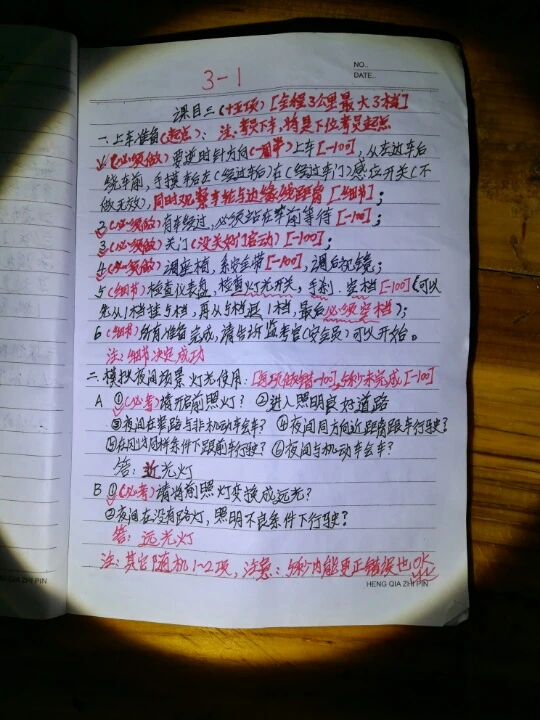 3-1
NO.
DATE.
课目三(十五项)[全程3公里最大3档]
一.上车准备(起点):注:考员下车,将是下位考员起点
1(必须做)要逆时针方向(一周半)上车[-100],从左边车后
绕车前,手摸车后左(经过车后)右(经过车门)感应开关(不
做无效),同时观察车轮与边缘线距离[细节];
2(必须做)有车经过,必须站在车前等待[-100];
3(必须做)关门(没关好门启动)[-100];
4(必须做)调座椅,系安全带[-100],调后视镜;
5(细节)检查仪表盘,检查灯光开关,手刹.空档[-100](可以
先从1档挂5档,再从5档退1档,最后必须空档);
6(细节)所有准备完成,请告诉监考官(安全员)可以开始。
注:细节决定成功
二.模拟夜间场景灯光使用:[每项做错-100],5秒未完成[-100]
A ①(必考)请开启前照灯?②进入照明良好道路
③夜间在窄路与非机动车会车?④夜间同方向近距离跟车行驶?
⑤在同样条件下跟前车行驶?⑥夜间与机动车会车?
答:近光灯
B ①(必考)请将前照灯变换成远光?
②夜间在没有路灯,照明不良条件下行驶?
答:远光灯
注:其它随机1~2项,注意:5秒内能更正错误也OK
QIA ZHI PIN
HENG QIA ZHI PIN